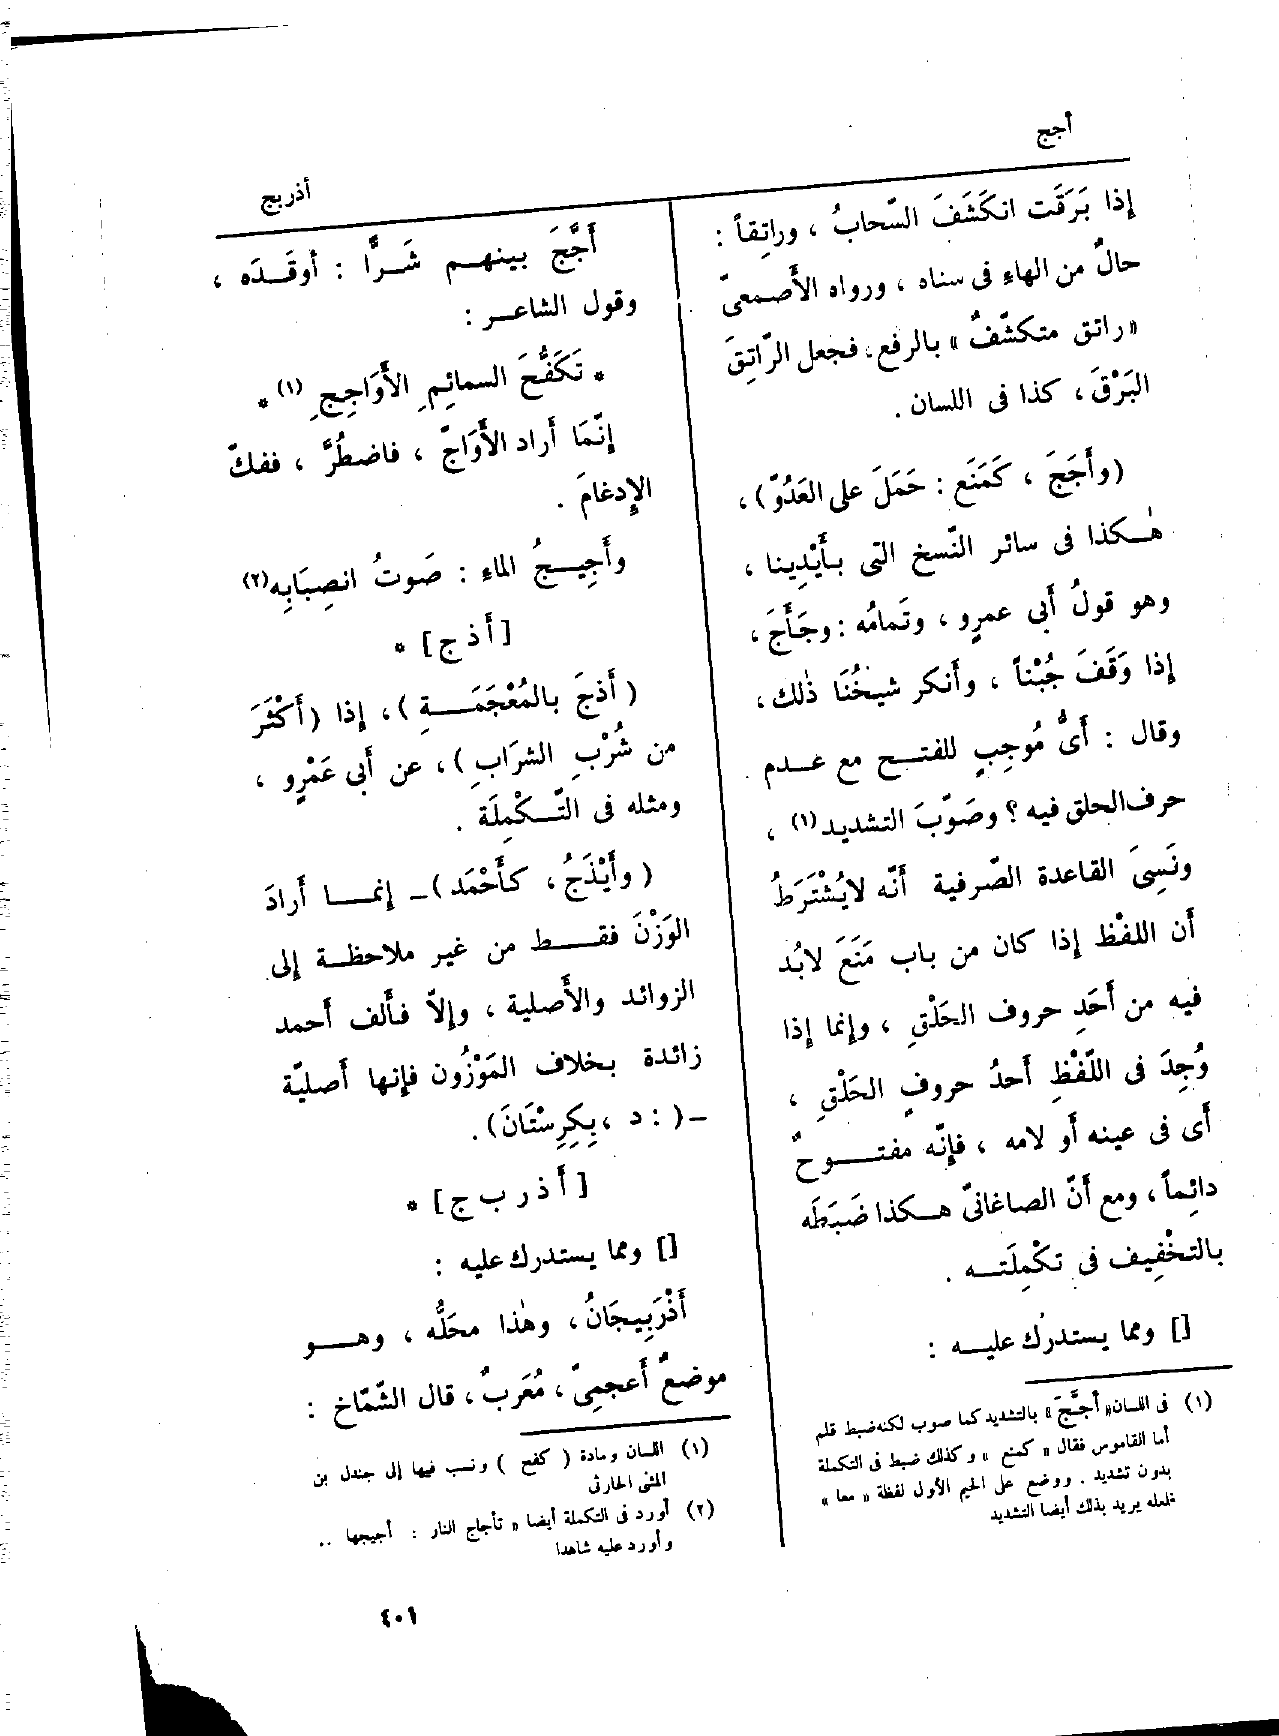 أجج
أذربج
إذا بَرَقَت انكَشَفَ السّحابُ ، وراتِقاً :
حالٌ من الهاءِ فى سناه ، ورواه الأَصمعىّ
« راتق متكشّفٌ » بالرفع ، فجعل الرّاتِقَ
البَرْقَ ، كذا فى اللسان .
(وأَجَجَ ، كَمَنَع : حَمَلَ على العَدُوّ) ،
هٰكذا فى سائر النّسخ التى بأَيْدِينا ،
وهو قولُ أَبى عمرٍو ، وتَمامُه : وجَأَجَ ،
إذا وَقَفَ جُبْناً ، وأَنكر شيخُنَا ذٰلك ،
وقال : أَىُّ مُوجِبٍ للفتح مع عدم
حرف الحلق فيه ؟ وصَوّبَ التشديد (١) ،
ونَسِىَ القاعدة الصّرفية أَنّه لايُشْتَرَطُ
أَن اللفْظ إذا كان من باب مَنَعَ لابُد
فيه من أَحَدِ حروف الحَلْقِ ، وإنما إذا
وُجِدَ فى اللّفْظِ أَحدُ حروفٍ الحَلْقِ ،
أَى فى عينه أَو لامه ، فإنّه مفتوحٌ
دائِماً ، ومع أَنّ الصاغانىّ هكذا ضَبَطَه
بالتخْفِيف فى تكْمِلَته .
[] ومما يستدرك عليه :
(١) فى اللسان « أجَّجَ » بالتشديد كما صوب لكنه ضبط قلم
أما القاموس فقال « كمنع » وكذلك ضبط فى التكملة
بدون تشديد . ووضع على الجيم الأول لفظة « معا »
فلعله يريد بذلك أيضا التشديد
أَجَّجَ بينهم شَرًّا : أوقَدَه ،
وقول الشاعر :
* تَكَفُّحَ السمائِمِ الأَوَاجِجِ (١) *
إنّمَا أَراد الأَوَاجّ ، فاضطُرَّ ، ففكّ
الإِدغامَ .
وأَجِيجُ الماءِ : صَوتُ انصِبَابِه (٢)
[أ ذ ج] *
( أَذجَ بالمُعْجَمَةِ ) ، إذا ( أَكْثَرَ
من شُرْبِ الشرَابِ ) ، عن أَبى عَمْرٍو ،
ومثله فى التّكْمِلَة .
( وأَيْذَجُ ، كأَحْمَد ) ـ إنما أَرادَ
الوَزْنَ فقط من غير ملاحظة إلى
الزوائد والأَصلية ، وإلاّ فأَلف أَحمد
زائدة بخلاف المَوْزُون فإنها أَصليّة
ـ ( : د ، بِكِرِسْتَانَ ) .
[أ ذ ر ب ج] *
[] ومما يستدرك عليه :
أَذْرَبِيجَانُ ، وهٰذا محَلُّه ، وهو
موضعٌ أَعجمِىّ ، مُعَربٌ ، قال الشّمّاخ :
(١) اللسان ومادة ( كفح ) ونسب فيها إلى جندل بن
المثنى الحارثى
(٢) أورد فى التكملة أيضا « تأجاج النار : أجيجها ..
وأورد عليه شاهدا
٤٠١